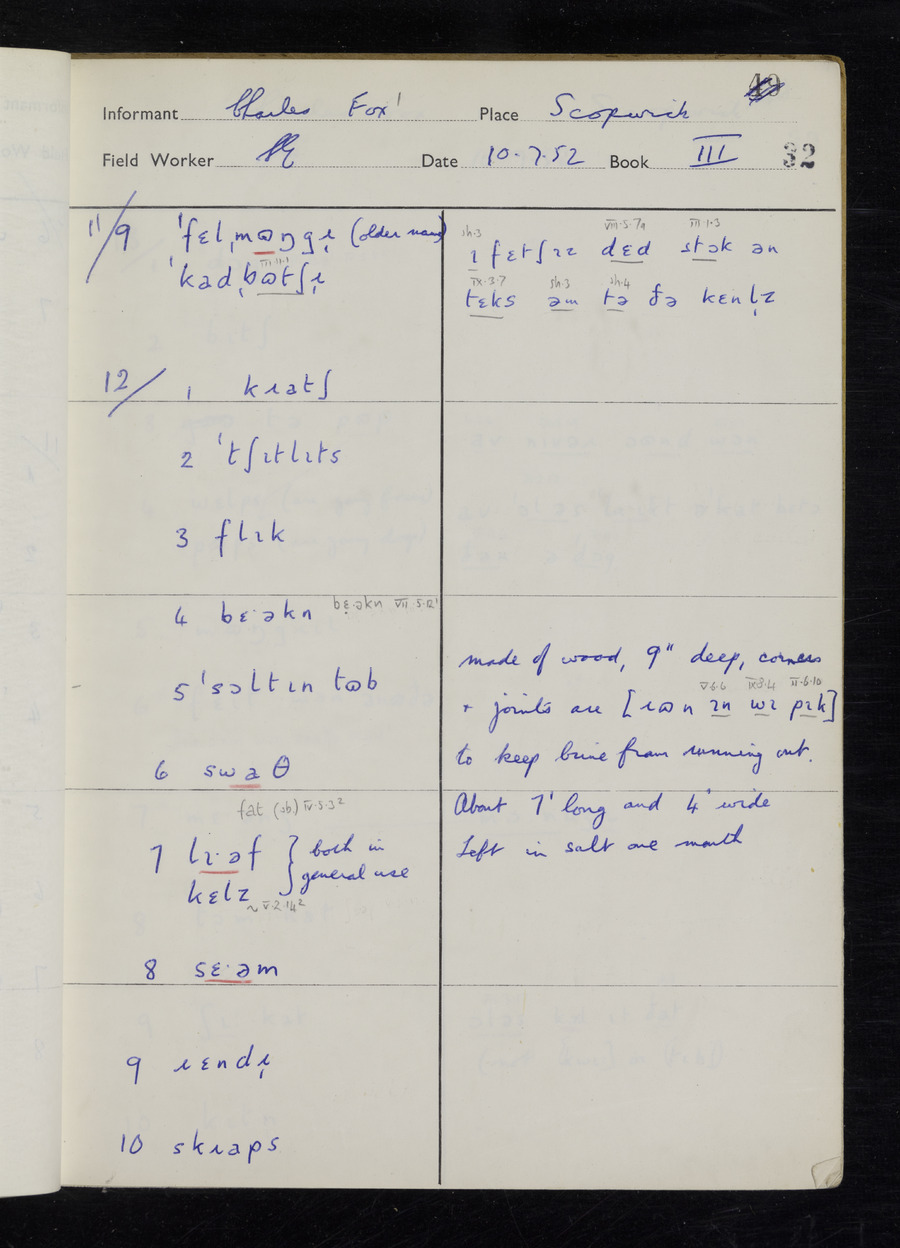 49
Informant Charles Fox¹ Place Scopwick
Field Worker Date 10.7.52 Book III 32
11/9 ˈfɛlˌmɷŋgɹ̩ (older name)
III.11.1
ˈkadˌbɷtʃɹ̩
sh.3 VIII.5.7a III.1.3
ɪ fɛtʃɪz dɛd stɔk ən
IX.3.7 sh.3 sh.4
tɛks əm tə ðə kɛnl̩z
12/ 1 kɹatʃ
2 ˈtʃɪtlɪts
3 flɪk
4 bɛ·əkn bɛ̣·əkn VII.5.12¹
5 ˈsɔltɪn tɷb
6 swaθ
fat (sb.) IV.5.3²
7 lɪ·əf } both in
kɛlz } general use
~ V.2.14²
8 sɛ·əm
9 ɹɛndɹ̩
10 skɹaps
made of wood, 9" deep, corners
V.6.6 IX.8.4 II.6.10
+ joints are [ɹɷn ɪn wɪ pɪk]
to keep brine from running out.
About 7' long and 4' wide
Left in salt one month